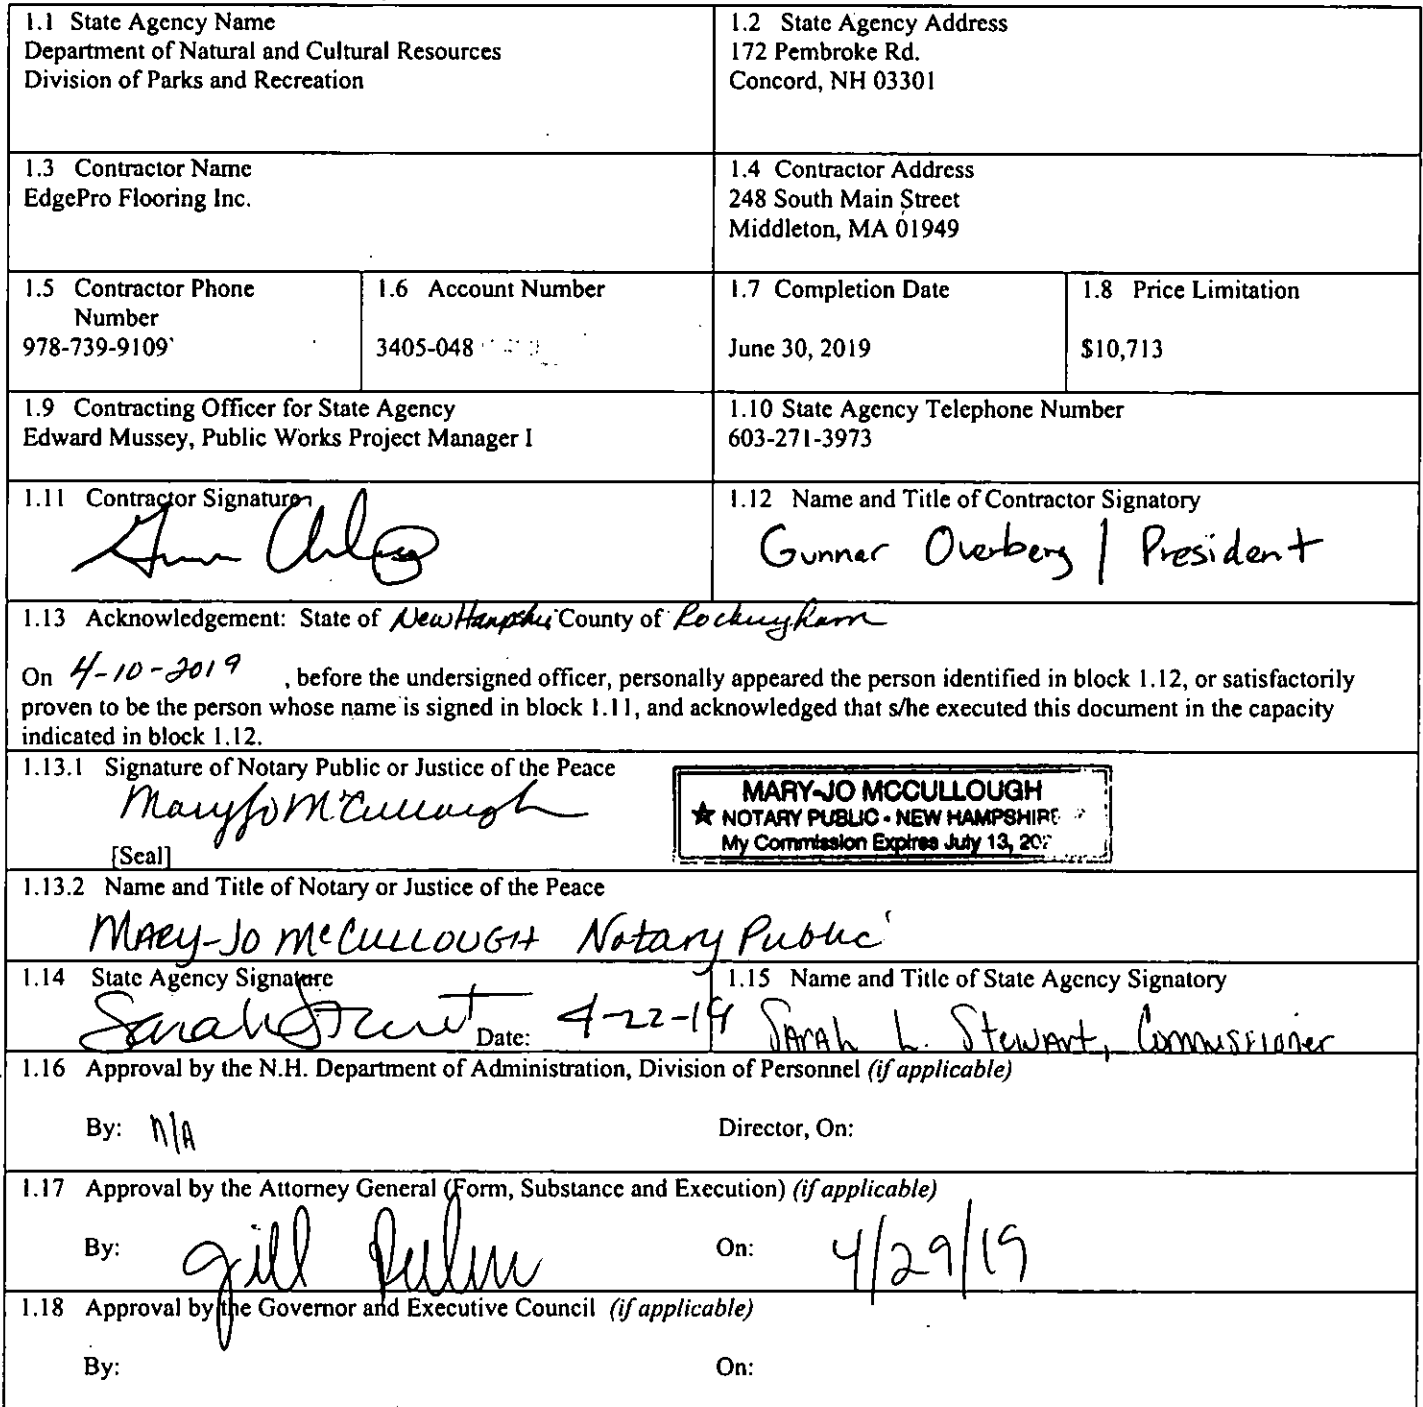 1.1 State Agency Name
Department of Natural and Cultural Resources
Division of Parks and Recreation
1.2 State Agency Address
172 Pembroke Rd.
Concord, NH 03301
1.3 Contractor Name
EdgePro Flooring Inc.
1.4 Contractor Address
248 South Main Street
Middleton, MA 01949
1.5 Contractor Phone
Number
978-739-9109
1.6 Account Number
3405-048
1.7 Completion Date
June 30, 2019
1.8 Price Limitation
$10,713
1.9 Contracting Officer for State Agency
Edward Mussey, Public Works Project Manager I
1.10 State Agency Telephone Number
603-271-3973
1.11 Contractor Signature
1.12 Name and Title of Contractor Signatory
Gunnar Overberg / President
1.13 Acknowledgement: State of New Hampshire County of Rockingham
On 4-10-2019 , before the undersigned officer, personally appeared the person identified in block 1.12, or satisfactorily
proven to be the person whose name is signed in block 1.11, and acknowledged that s/he executed this document in the capacity
indicated in block 1.12.
1.13.1 Signature of Notary Public or Justice of the Peace
Mary Jo McCullough
[Seal]
MARY-JO MCCULLOUGH
NOTARY PUBLIC - NEW HAMPSHIRE
My Commission Expires July 13,
1.13.2 Name and Title of Notary or Justice of the Peace
MARY-JO McCULLOUGH Notary Public
1.14 State Agency Signature
Sarah Stewart Date: 4-22-19
1.15 Name and Title of State Agency Signatory
Sarah L. Stewart, Commissioner
1.16 Approval by the N.H. Department of Administration, Division of Personnel (if applicable)
By: N/A Director, On:
1.17 Approval by the Attorney General (Form, Substance and Execution) (if applicable)
By: On: 4/29/19
1.18 Approval by the Governor and Executive Council (if applicable)
By: On: